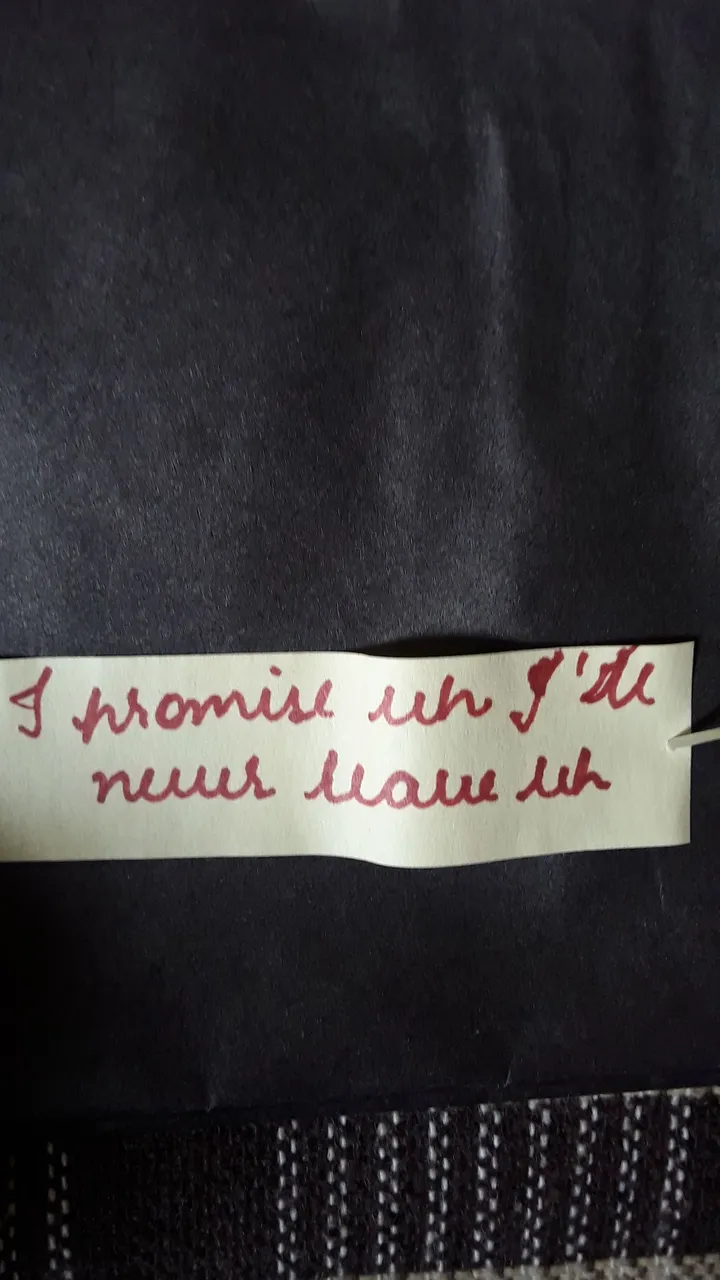 I promise uh I'll
never leave uh